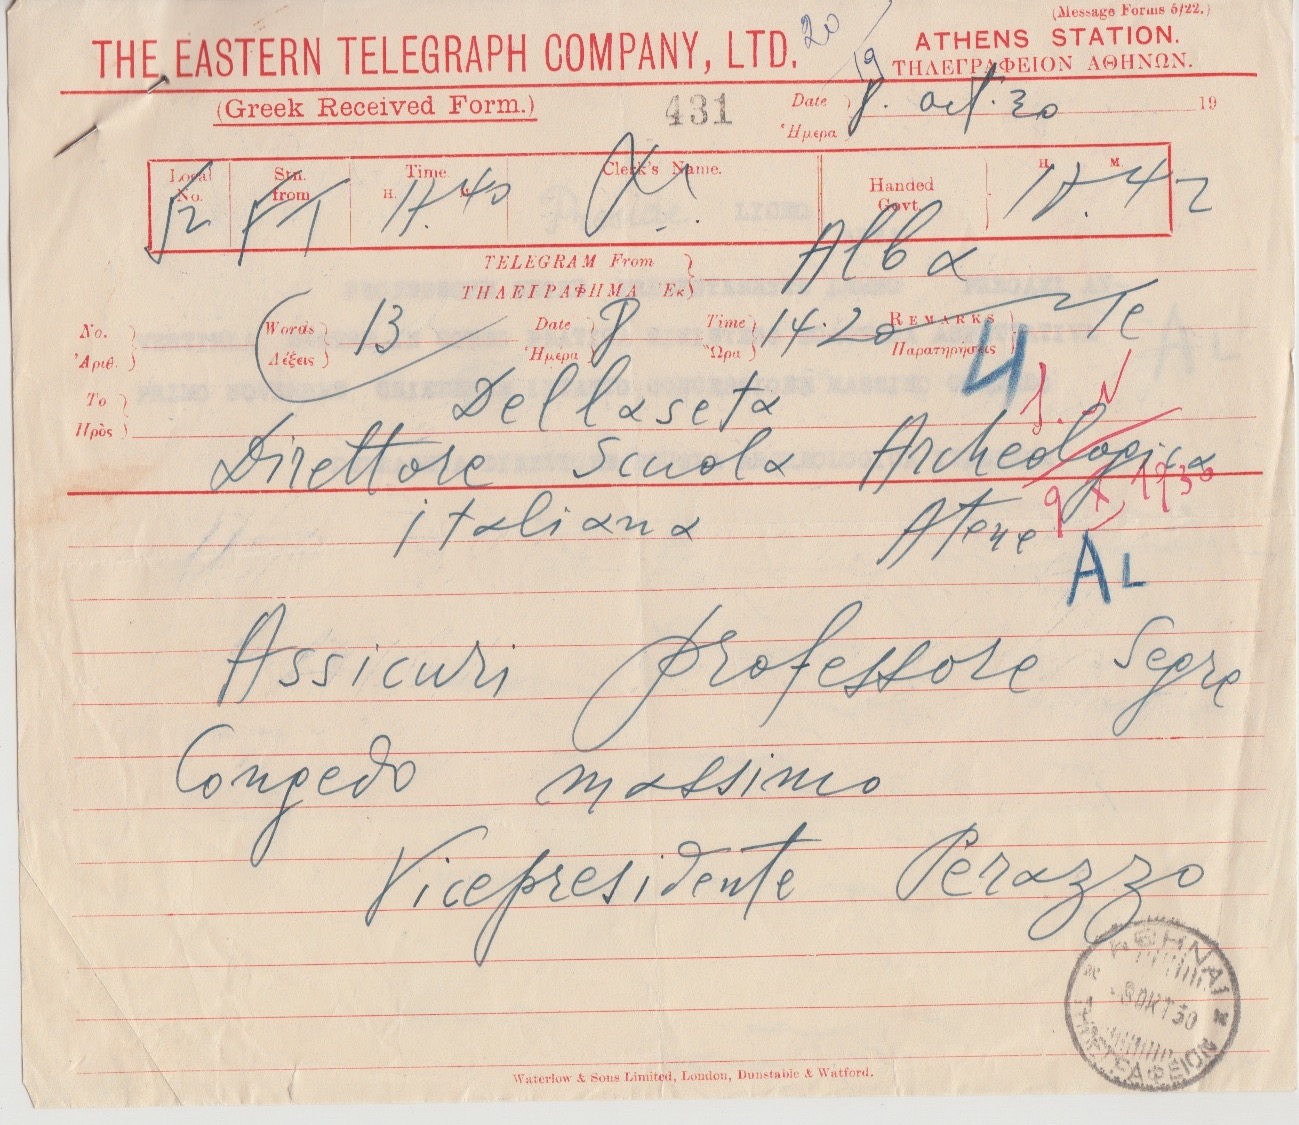 (Message Forms 5/22.)
THE EASTERN TELEGRAPH COMPANY, LTD. 20/19 ATHENS STATION.
ΤΗΛΕΓΡΑΦΕΙΟΝ ΑΘΗΝΩΝ.
(Greek Received Form.) 431 Date Ἡμέρα 8. oct. 30 19
Local No. Stn. from Time H. M. Clerk's Name. Handed Govt. H. M.
17.40 17.42
TELEGRAM From ΤΗΛΕΓΡΑΦΗΜΑ Ἐκ Alba
No. Ἀριθ. Words Λέξεις 13 Date Ἡμέρα 8 Time Ὥρα 14.20 REMARKS Παρατηρήσεις Te
4
To Πρὸς Dellaseta
Direttore Scuola Archeologica
9 X 1930
italiana Atene
AL
Assicuri professore Segre
Congedo massimo
Vicepresidente Perazzo
ΑΘΗΝΑΙ
8 ΟΚΤ 30
ΤΗΛΕΓΡΑΦΕΙΟΝ
Waterlow & Sons Limited, London, Dunstable & Watford.